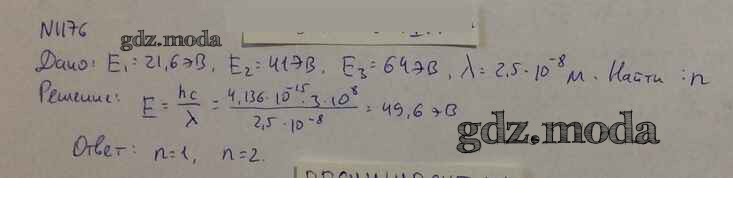 N1176
gdz.moda
Дано: E₁ = 21,6 эВ, E₂ = 41 эВ, E₃ = 64 эВ, λ = 2,5·10⁻⁸ м. Найти: n
Решение: E = hc/λ = 4,136·10⁻¹⁵·3·10⁸/2,5·10⁻⁸ = 49,6 эВ
gdz.moda
Ответ: n=1, n=2.